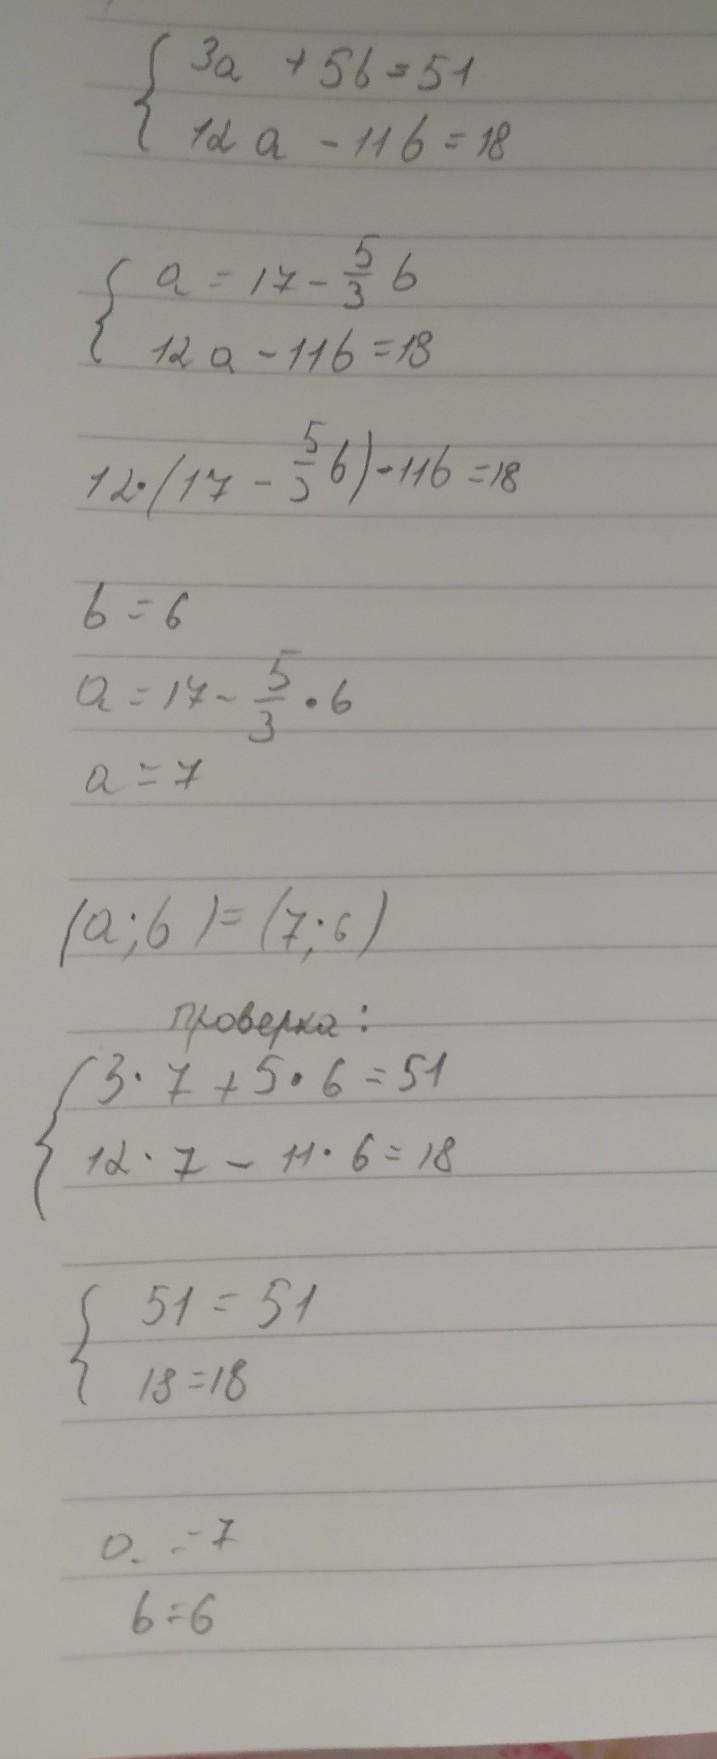 { 3a + 5b = 51
12a - 11b = 18
{ a = 17 - 5/3 b
12a - 11b = 18
12·(17 - 5/3 b) - 11b = 18
b = 6
a = 17 - 5/3 · 6
a = 7
(a; b) = (7; 6)
проверка:
{ 3·7 + 5·6 = 51
12·7 - 11·6 = 18
{ 51 = 51
18 = 18
a = 7
b = 6